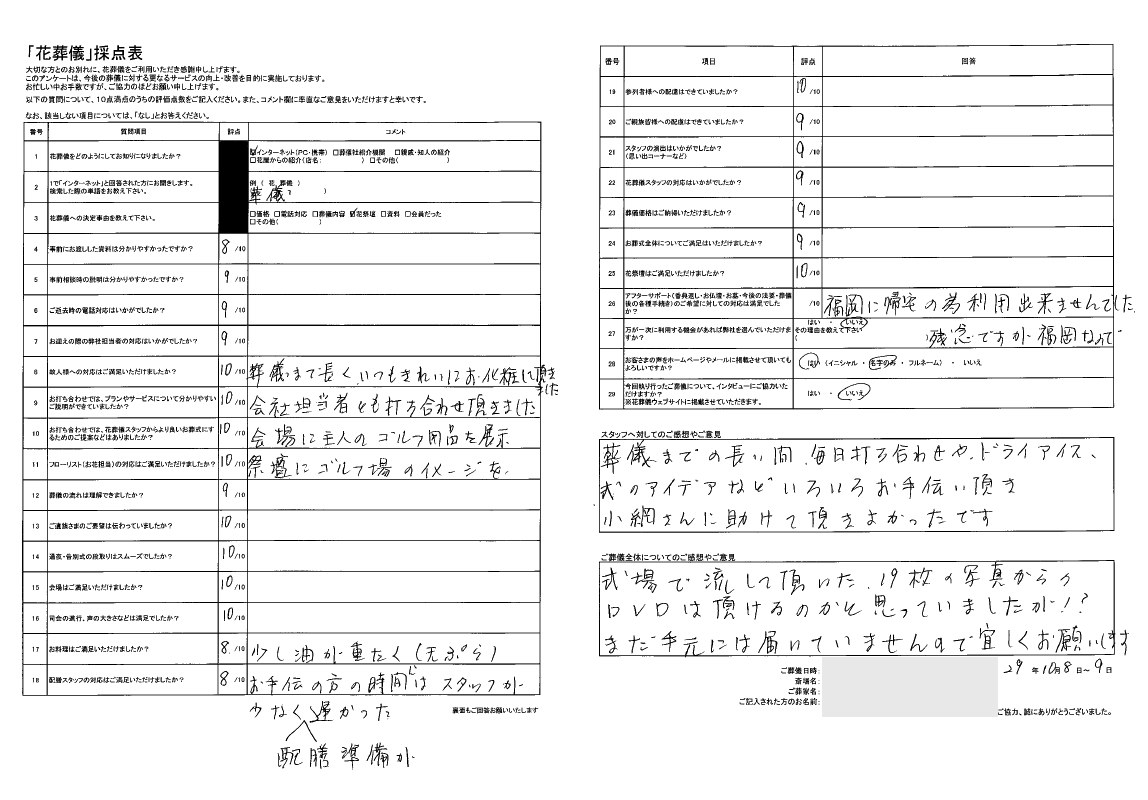 「花葬儀」採点表
大切な方とのお別れに、花葬儀をご利用いただき感謝申し上げます。
このアンケートは、今後の葬儀に対する更なるサービスの向上・改善を目的に実施しております。
お忙しい中お手数ですが、ご協力のほどお願い申し上げます。
以下の質問について、10点満点のうちの評価点数をご記入ください。また、コメント欄に率直なご意見をいただけますと幸いです。
なお、該当しない項目については、「なし」とお答えください。
番号 質問項目 評点 コメント
1 花葬儀をどのようにしてお知りになりましたか? ☑インターネット(PC・携帯) □葬儀社紹介機関 □親戚・知人の紹介
□花屋からの紹介(店名: ) □その他( )
2 1で「インターネット」と回答された方にお聞きします。
検索した際の単語をお教え下さい。
例 ( 花 葬儀 )
葬儀 )
3 花葬儀への決定事由を教えて下さい。 □価格 □電話対応 □葬儀内容 ☑花祭壇 □資料 □会員だった
□その他( )
4 事前にお渡しした資料は分かりやすかったですか? 8 /10
5 事前相談時の説明は分かりやすかったですか? 9 /10
6 ご逝去時の電話対応はいかがでしたか? 9 /10
7 お迎えの際の弊社担当者の対応はいかがでしたか? 9 /10
8 故人様への対応はご満足いただけましたか? 10 /10 葬儀まで長く、いつもきれいにお化粧して頂き
ました
9 お打ち合わせでは、プランやサービスについて分かりやすい
ご説明ができていましたか? 10 /10 会社担当者とも打ち合わせ頂きました
10 お打ち合わせでは、花葬儀スタッフからより良いお葬式にす
るためのご提案などはありましたか? 10 /10 会場に主人のゴルフ用品を展示
11 フローリスト(お花担当)の対応はご満足いただけましたか? 10 /10 祭壇にゴルフ場のイメージを
12 葬儀の流れは理解できましたか? 9 /10
13 ご遺族さまのご要望は伝わっていましたか? 10 /10
14 通夜・告別式の段取りはスムーズでしたか? 10 /10
15 会場はご満足いただけましたか? 10 /10
16 司会の進行、声の大きさなどは満足でしたか? 10 /10
17 お料理はご満足いただけましたか? 8 /10 少し油が重たく(天ぷら)
18 配膳スタッフの対応はご満足いただけましたか? 8 /10 お手伝の方の時間にはスタッフが
少なく遅かった
配膳準備が
裏面もご回答お願いいたします
番号 項目 評点 回答
19 参列者様への配慮はできていましたか? 10 /10
20 ご親族皆様への配慮はできていましたか? 9 /10
21 スタッフの演出はいかがでしたか?
(思い出コーナーなど) 9 /10
22 花葬儀スタッフの対応はいかがでしたか? 9 /10
23 葬儀価格はご納得いただけましたか? 9 /10
24 お葬式全体についてご満足はいただけましたか? 9 /10
25 花祭壇はご満足いただけましたか? 10 /10
26 アフターサポート(香典返し・お仏壇・お墓・今後の法要・葬儀
後の各種手続き)のご希望に対しての対応は満足でした
か? /10 福岡に帰宅の為利用出来ませんでした
27 万が一次に利用する機会があれば弊社を選んでいただけま
すか?
はい ・ いいえ
その理由を教えて下さい
( 残念ですが福岡なので
28 お客さまの声をホームページやメールに掲載させて頂いても
よろしいですか? はい (イニシャル ・ 名字のみ ・ フルネーム) ・ いいえ
29 今回執り行ったご葬儀について、インタビューにご協力いた
だけますか?
※花葬儀ウェブサイトに掲載させていただきます。
はい ・ いいえ
スタッフへ対してのご感想やご意見
葬儀までの長い間、毎日打ち合わせや、ドライアイス、
式のアイデアなどいろいろお手伝い頂き
小網さんに助けて頂きよかったです
ご葬儀全体についてのご感想やご意見
式場で流して頂いた、19枚の写真からの
DVDは頂けるのかと思っていましたが!?
まだ手元には届いていませんので宜しくお願いします
ご葬儀日時: 29 年 10月 8 日~ 9 日
斎場名:
ご葬家名:
ご記入された方のお名前:
ご協力、誠にありがとうございました。